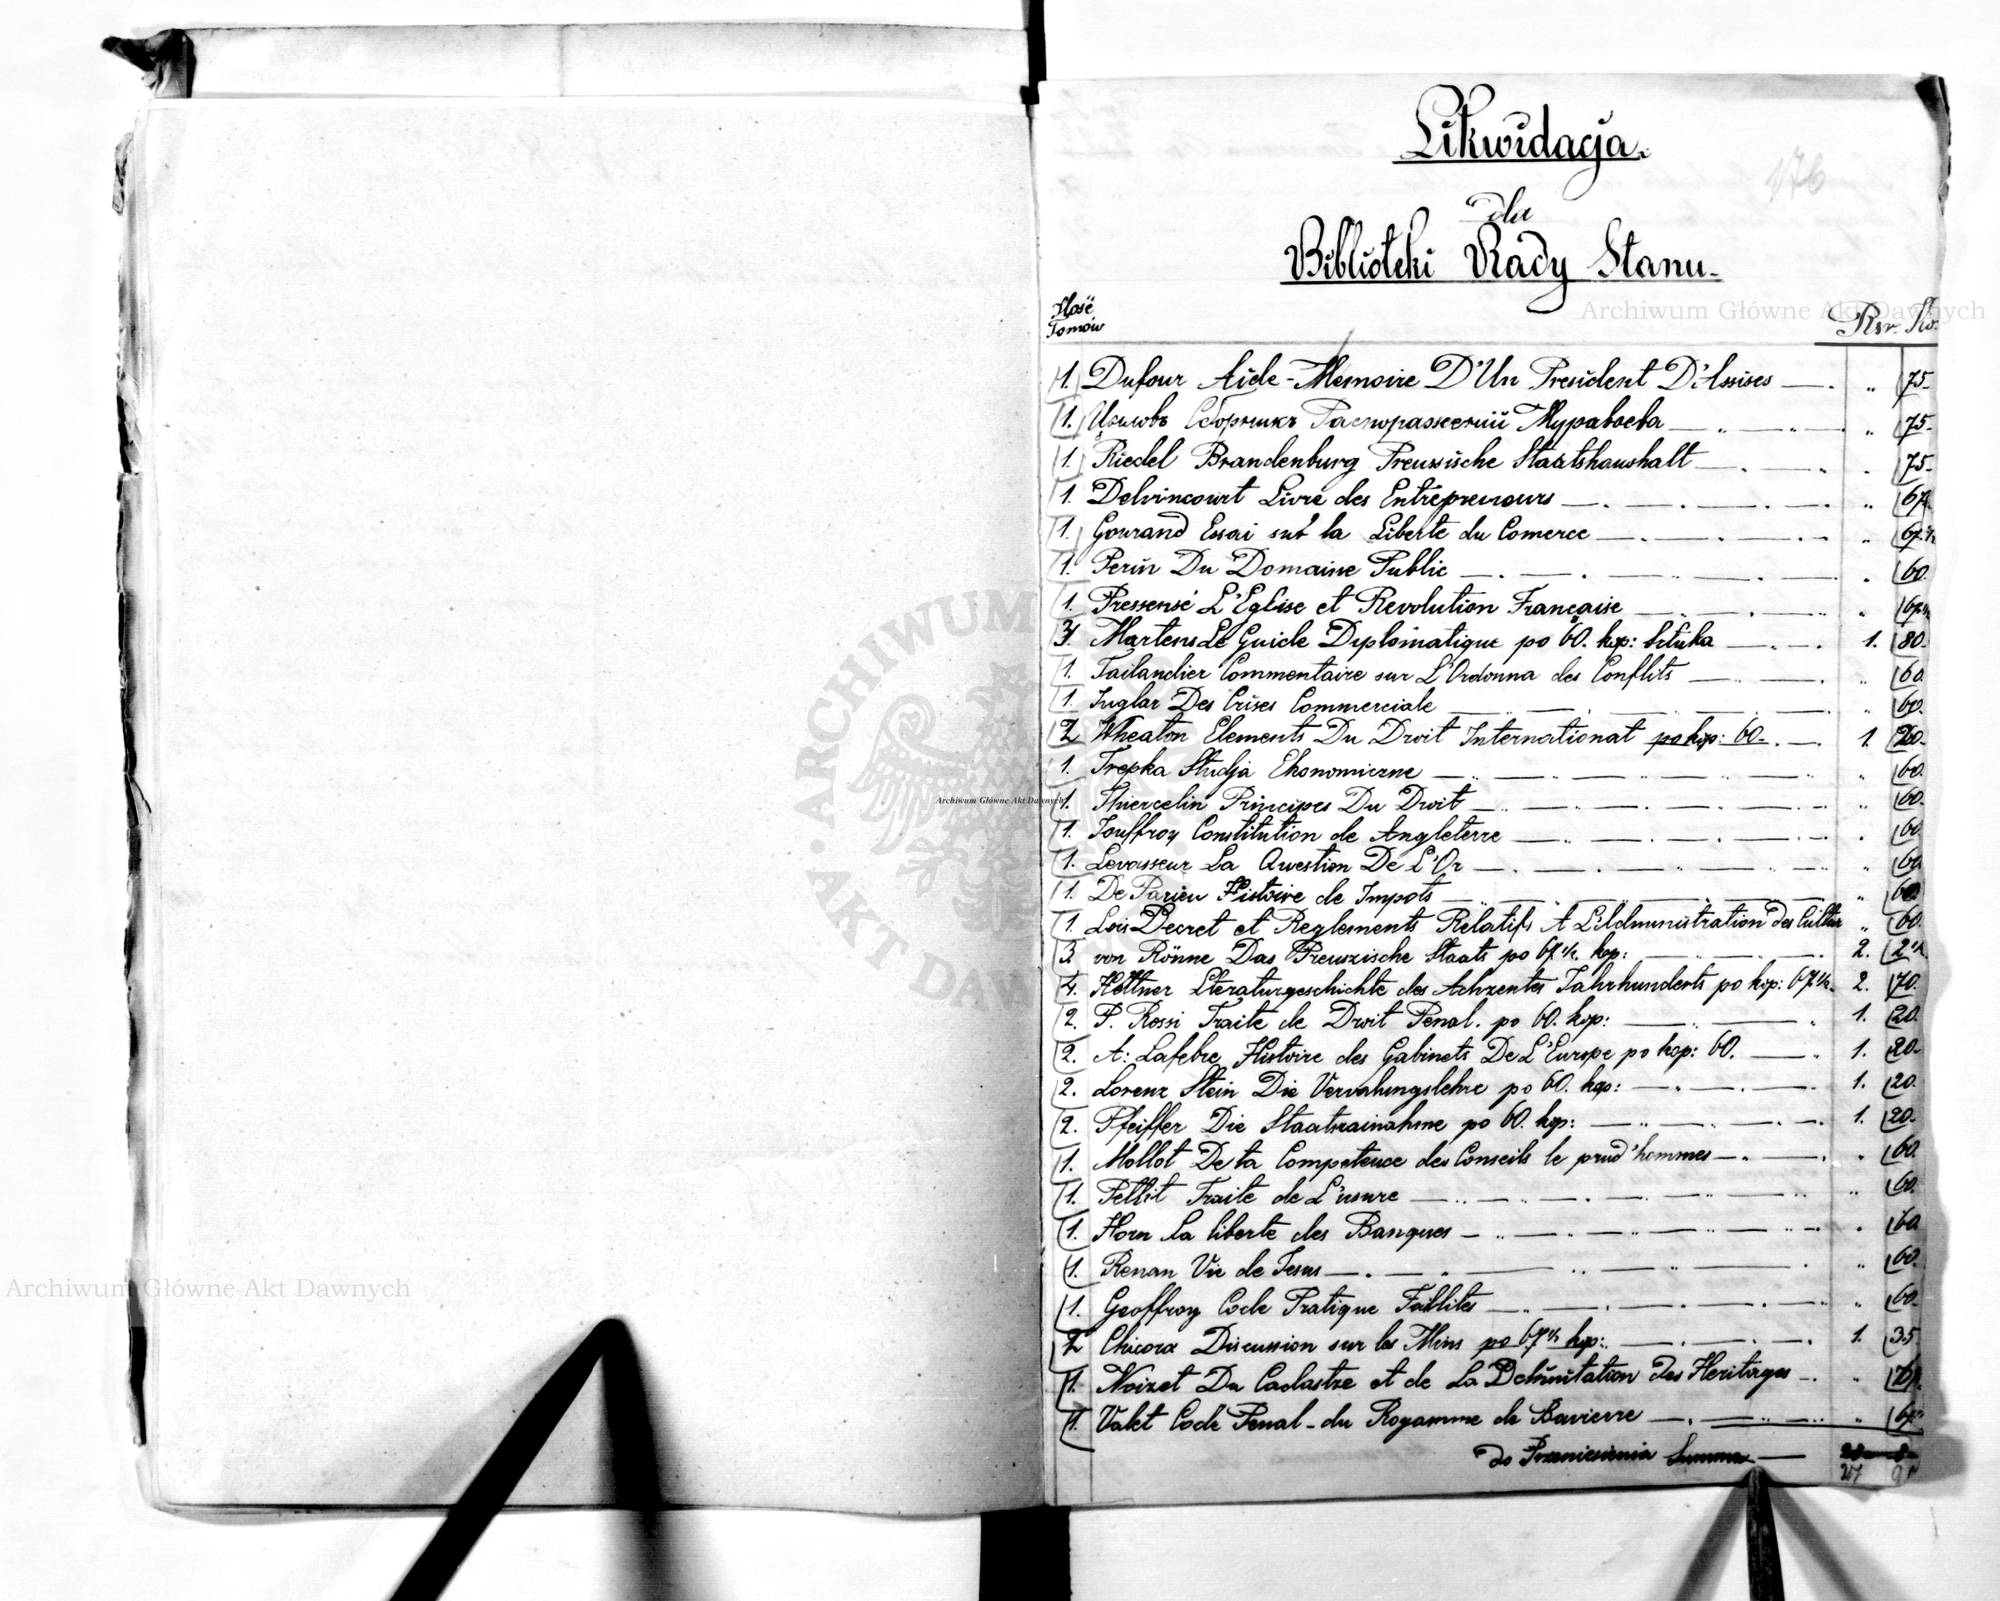 Likwidacja.
176
dla
Biblioteki Rady Stanu.
Ilość Tomów
Rsr. Ko.
1. Dufour Aide-Memoire D'Un President D'Assises — . " 75-
1. Сборникъ Распоряженiй Муравьева — " — " — " 75-
1. Riedel Brandenburg Preussische Staatshaushalt — . — " . 75-
1. Delvincourt Livre des Entrepreneurs — . — . — . — . " 67½
1. Gourand Essai sur la Liberte du Comerce — . — . — . — " 67½
1. Perin Du Domaine Public — . — . — " — . — . 60.
1. Pressensé L'Eglise et Revolution Française — " — . — " " 67½
3. Martens Le Guide Diplomatique po 60. kop: sztuka — " — . 1. 80-
1. Tailandier Commentaire sur L'Ordonna des Conflits — " — . " 60.
1. Juglar Des Crises Commerciale — " — . — " — . " 60.
2 Wheaton Elements Du Droit Internationat po kop: 60- . — . 1. 20-
1. Trepka Studja Ekonomiczne — " — " — " — " — " " 60.
1. Thiercelin Principes Du Droit — " — . — . — . — " " 60-
1. Jouffroy Constitution de Angleterre — " — . — . — . — . . 60
1. Levasseur La Question De L'Or — . — " — . — " — " " 60
1. De Parieu Histoire de Impots — " — " — . " 60.
1. Lois Decret et Reglements Relatifs A L'Administration des Cultur " 60.
3. von Rönne Das Preuszische Staats po 67½. kop: — " — . 2. 2½
4. Hettner Literaturgeschichte des Achzentes Jahrhunderts po kop: 67½. 2. 70.
2. P. Rossi Traite de Droit Penal. po 60. kop: — " — " 1. 20.
2. A: Lafebre Histoire des Gabinets De L'Europe po kop: 60. — " 1. 20-
2. Lorenz Stein Die Vervahungslehre po 60. kop: — " — . — . 1. 20.
2. Pfeiffer Die Staatsainahme po 60. kop: — " — " — . . 1. 20.
1. Mollot De la Competence des Conseils le prud'hommes — . — . . 60.
1. Pettit Traite de L'usure — " — " — . — " — " " 60.
1. Horn La liberte des Banques — " — . — " — " — " . 60
1. Renan Vie de Jesus — . — " — " — " — . " 60.
1. Geoffroy Code Pratique Faillites — " — . — " — . — " " 60-
2 Chicora Discussion sur les Mins po 67½ kop: — . — . — . 1. 35
1. Noizet Du Cadastre et de La Delimitation des Heritages — . "
1. Valet Code Penal - du Royamme de Bavierre — . — " — " " 67½
do Przeniesienia Summa —
27 91
Archiwum Główne Akt Dawnych
Archiwum Główne Akt Dawnych
Archiwum Główne Akt Dawnych
ARCHIWUM
AKT DAW